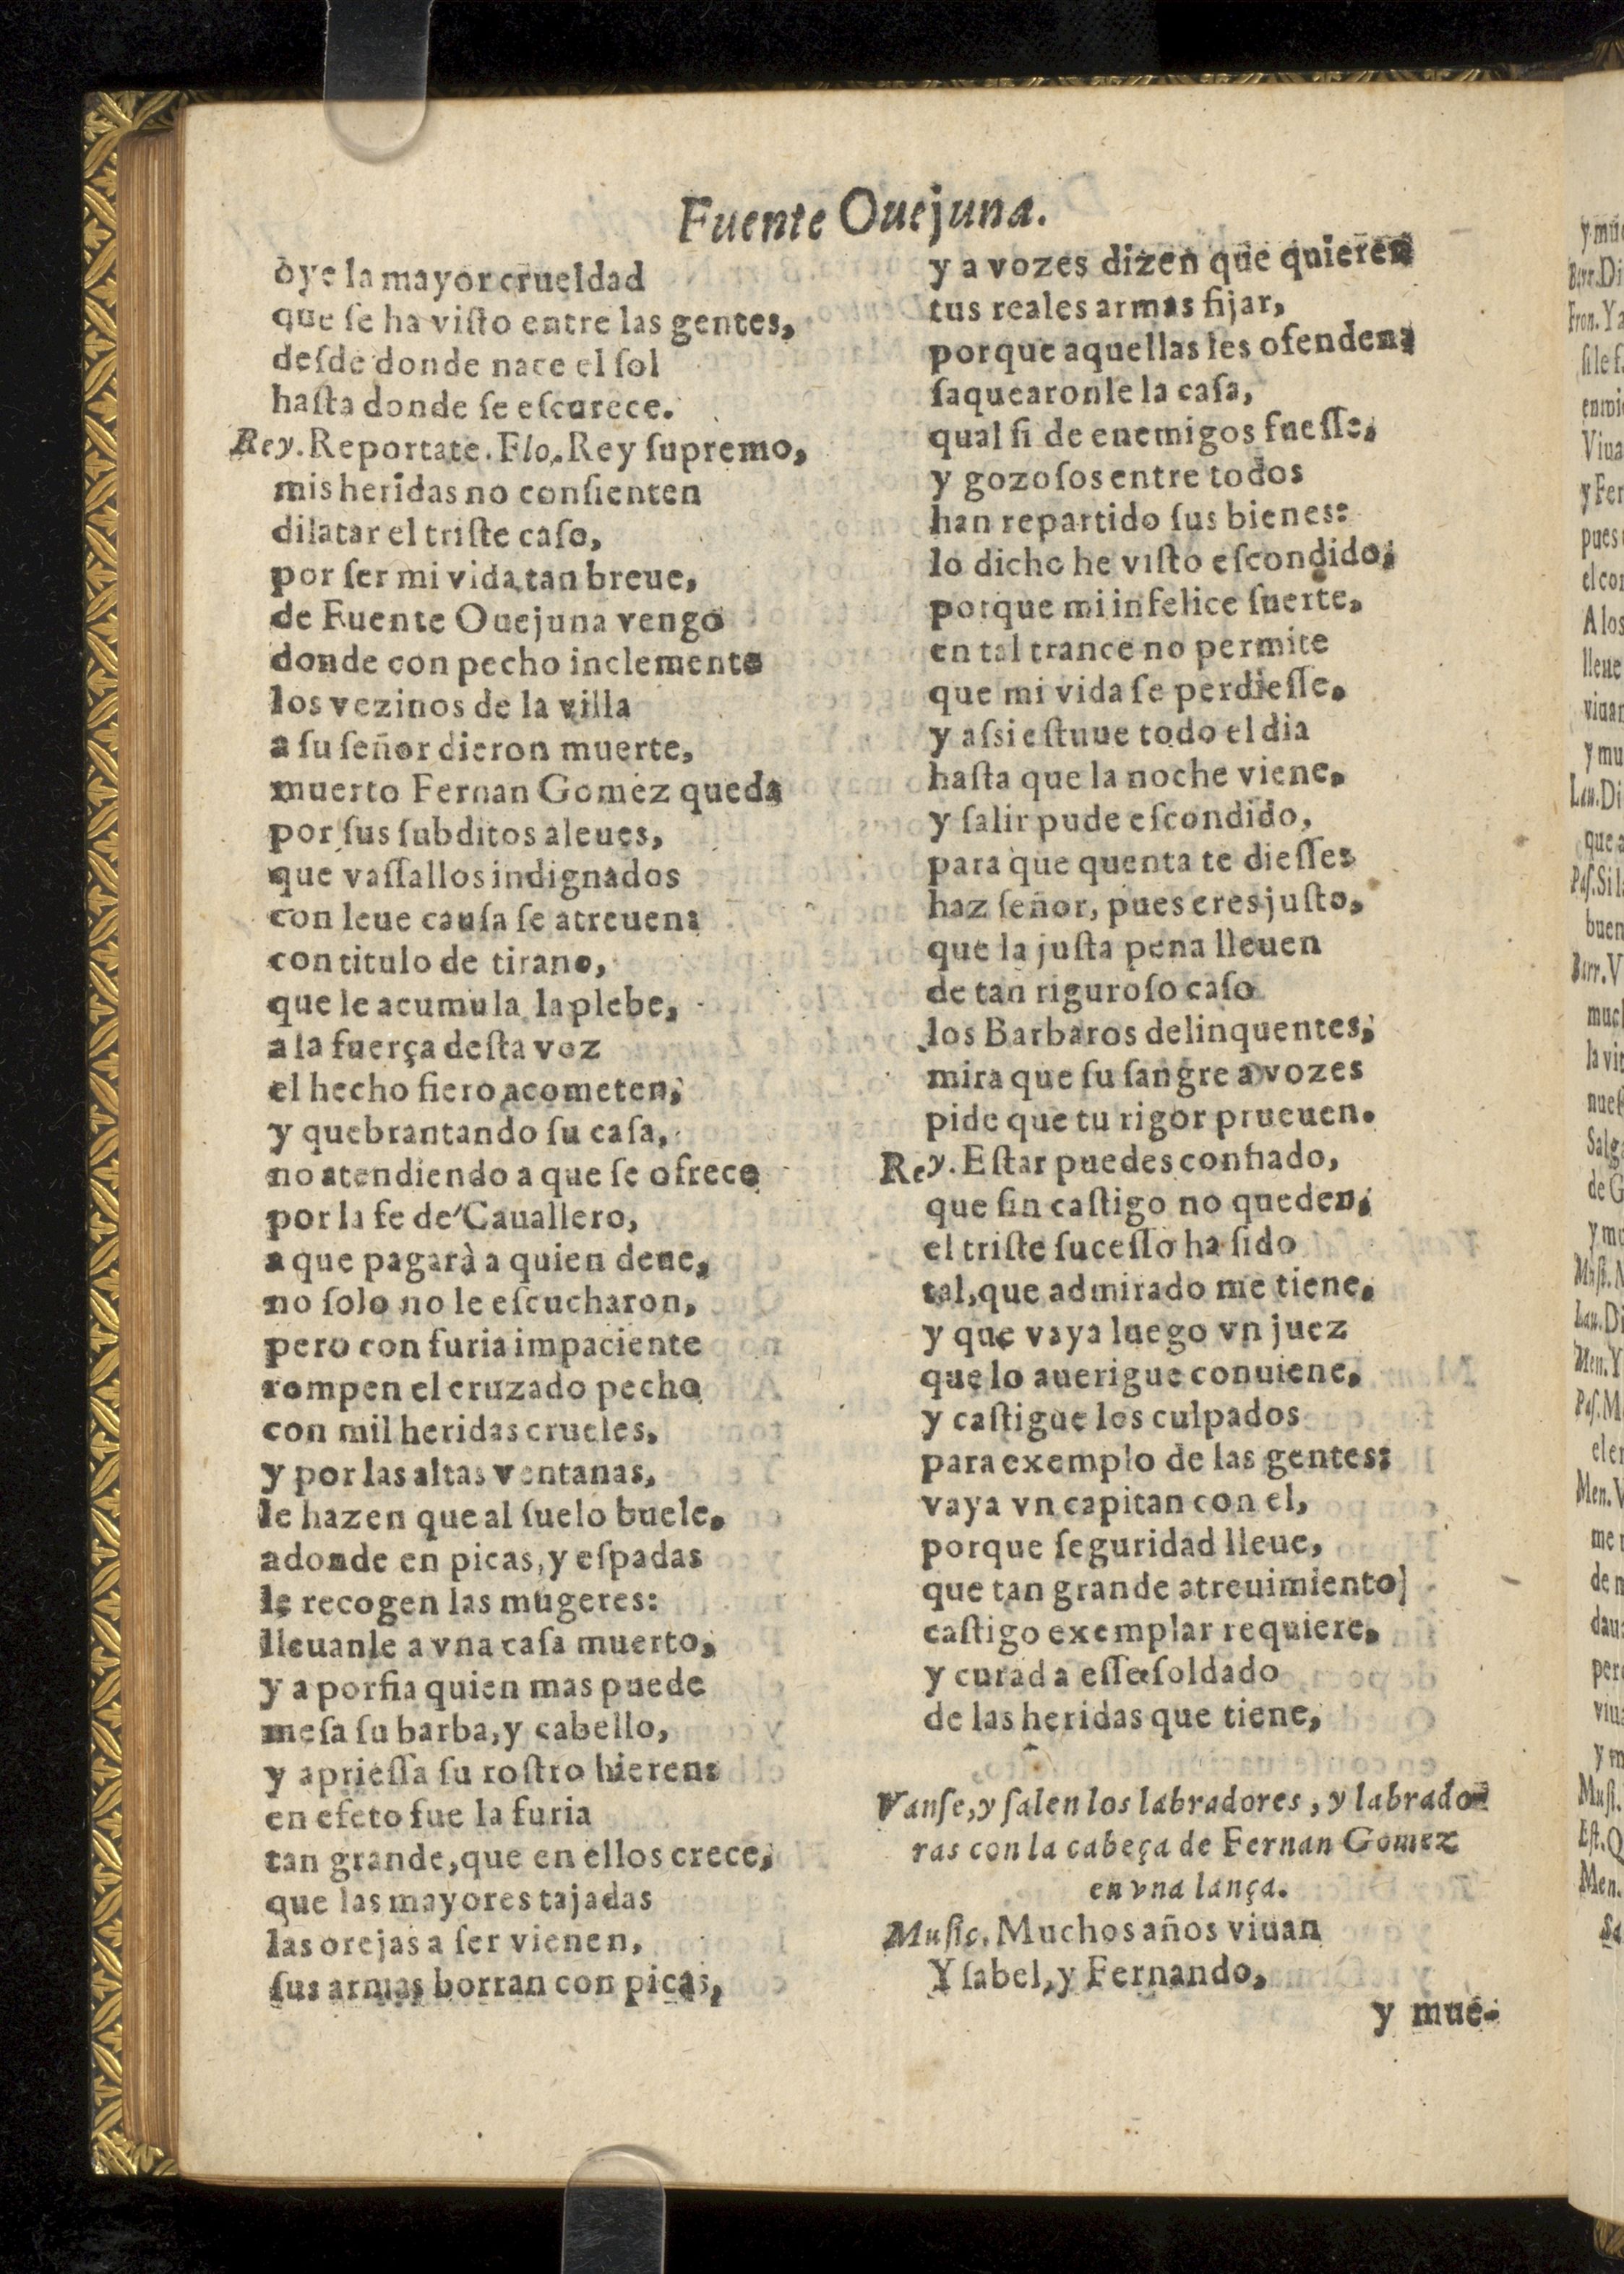 Fuente Ouejuna.
oye la mayor crueldad
que ſe ha viſto entre las gentes,
deſde donde nace el ſol
haſta donde ſe eſcurece.
Rey. Reportate. Flo. Rey ſupremo,
mis heridas no conſienten
dilatar el triſte caſo,
por ſer mi vida tan breue,
de Fuente Ouejuna vengo
donde con pecho inclemente
los vezinos de la villa
a ſu ſeñor dieron muerte,
muerto Fernan Gomez queda
por ſus ſubditos aleues,
que vaſſallos indignados
con leue cauſa ſe atreuen:
con titulo de tirano,
que le acumula la plebe,
a la fuerça deſta voz
el hecho fiero acometen;
y quebrantando ſu caſa,
no atendiendo a que ſe ofrece
por la fe de Cauallero,
a que pagarà a quien deue,
no ſolo no le eſcucharon,
pero con furia impaciente
rompen el cruzado pecho
con mil heridas crueles,
y por las altas ventanas,
le hazen que al ſuelo buele,
adonde en picas, y eſpadas
le recogen las mugeres:
lleuanle a vna caſa muerto,
y a porfia quien mas puede
meſa ſu barba, y cabello,
y aprieſſa ſu roſtro hieren:
en efeto fue la furia
tan grande, que en ellos crece,
que las mayores tajadas
las orejas a ſer vienen,
ſus armas borran con picas,
y a vozes dizen que quieren
tus reales armas fijar,
porque aquellas les ofenden;
ſaquearonle la caſa,
qual ſi de enemigos fueſſe,
y gozoſos entre todos
han repartido ſus bienes:
lo dicho he viſto eſcondido,
porque mi infelice ſuerte,
en tal trance no permite
que mi vida ſe perdieſſe.
y aſsi eſtuue todo el dia
haſta que la noche viene,
y ſalir pude eſcondido,
para que quenta te dieſſe:
haz ſeñor, pues eres juſto,
que la juſta pena lleuen
de tan riguroſo caſo
los Barbaros delinquentes;
mira que ſu ſangre a vozes
pide que tu rigor prueuen.
Rey. Eſtar puedes confiado,
que ſin caſtigo no queden;
el triſte ſuceſſo ha ſido
tal, que admirado me tiene,
y que vaya luego vn juez
que lo auerigue conuiene,
y caſtigue los culpados
para exemplo de las gentes:
vaya vn capitan con el,
porque ſeguridad lleue,
que tan grande atreuimiento
caſtigo exemplar requiere,
y curad a eſſe ſoldado
de las heridas que tiene,
Vanſe, y ſalen los labradores, y labrado-
ras con la cabeça de Fernan Gomez
en vna lança.
Muſic. Muchos años viuan
Yſabel, y Fernando,
y mue-